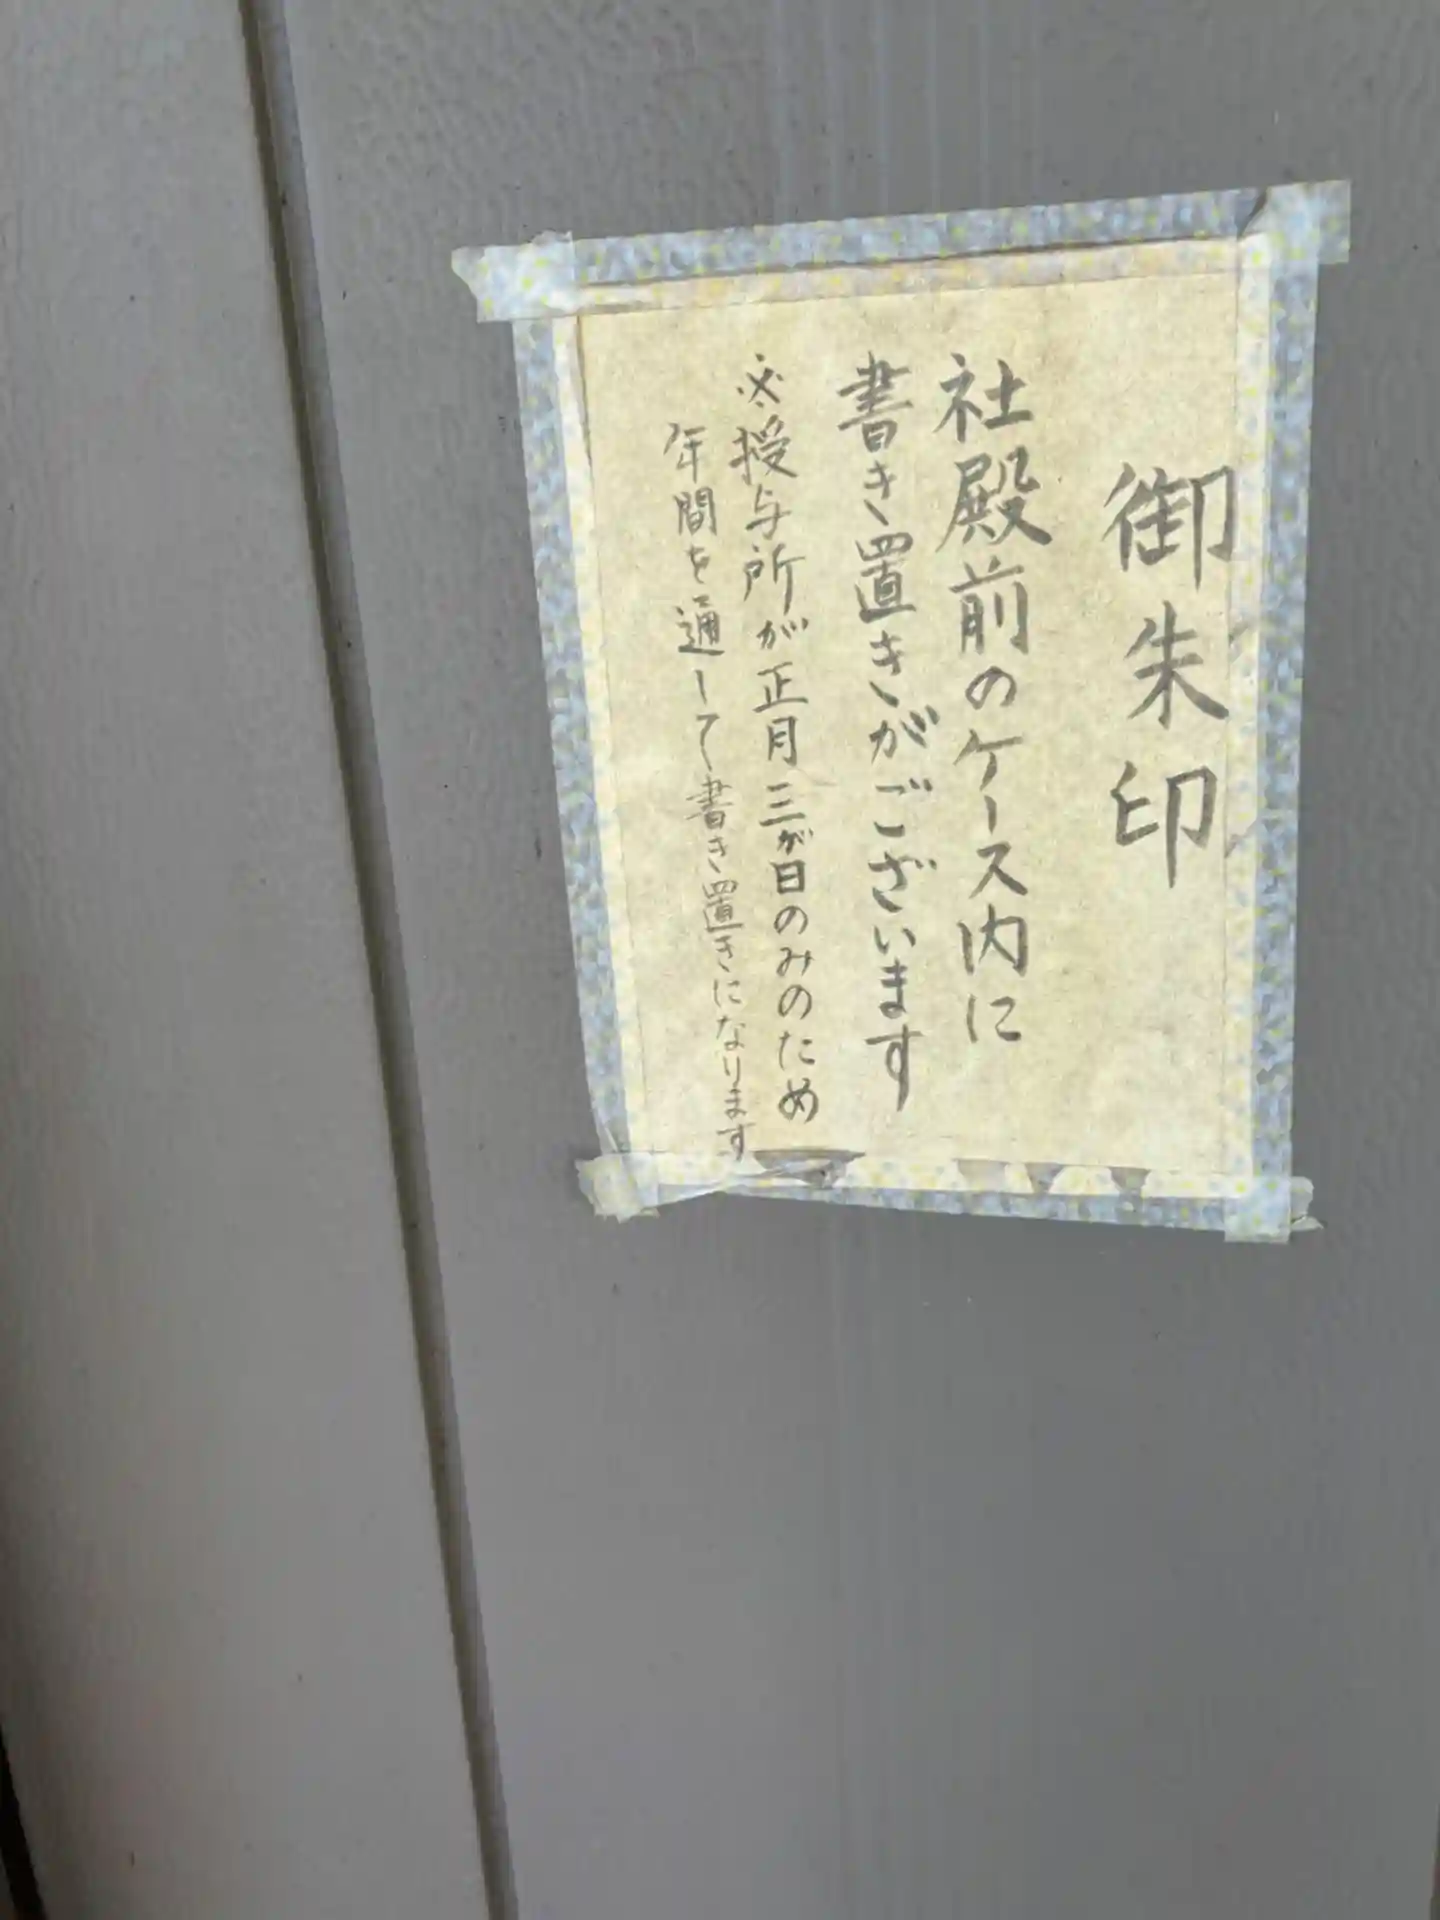 御朱印
社殿前のケース内に
書き置きがございます
※授与所が正月三が日のみのため
年間を通して書き置きになります